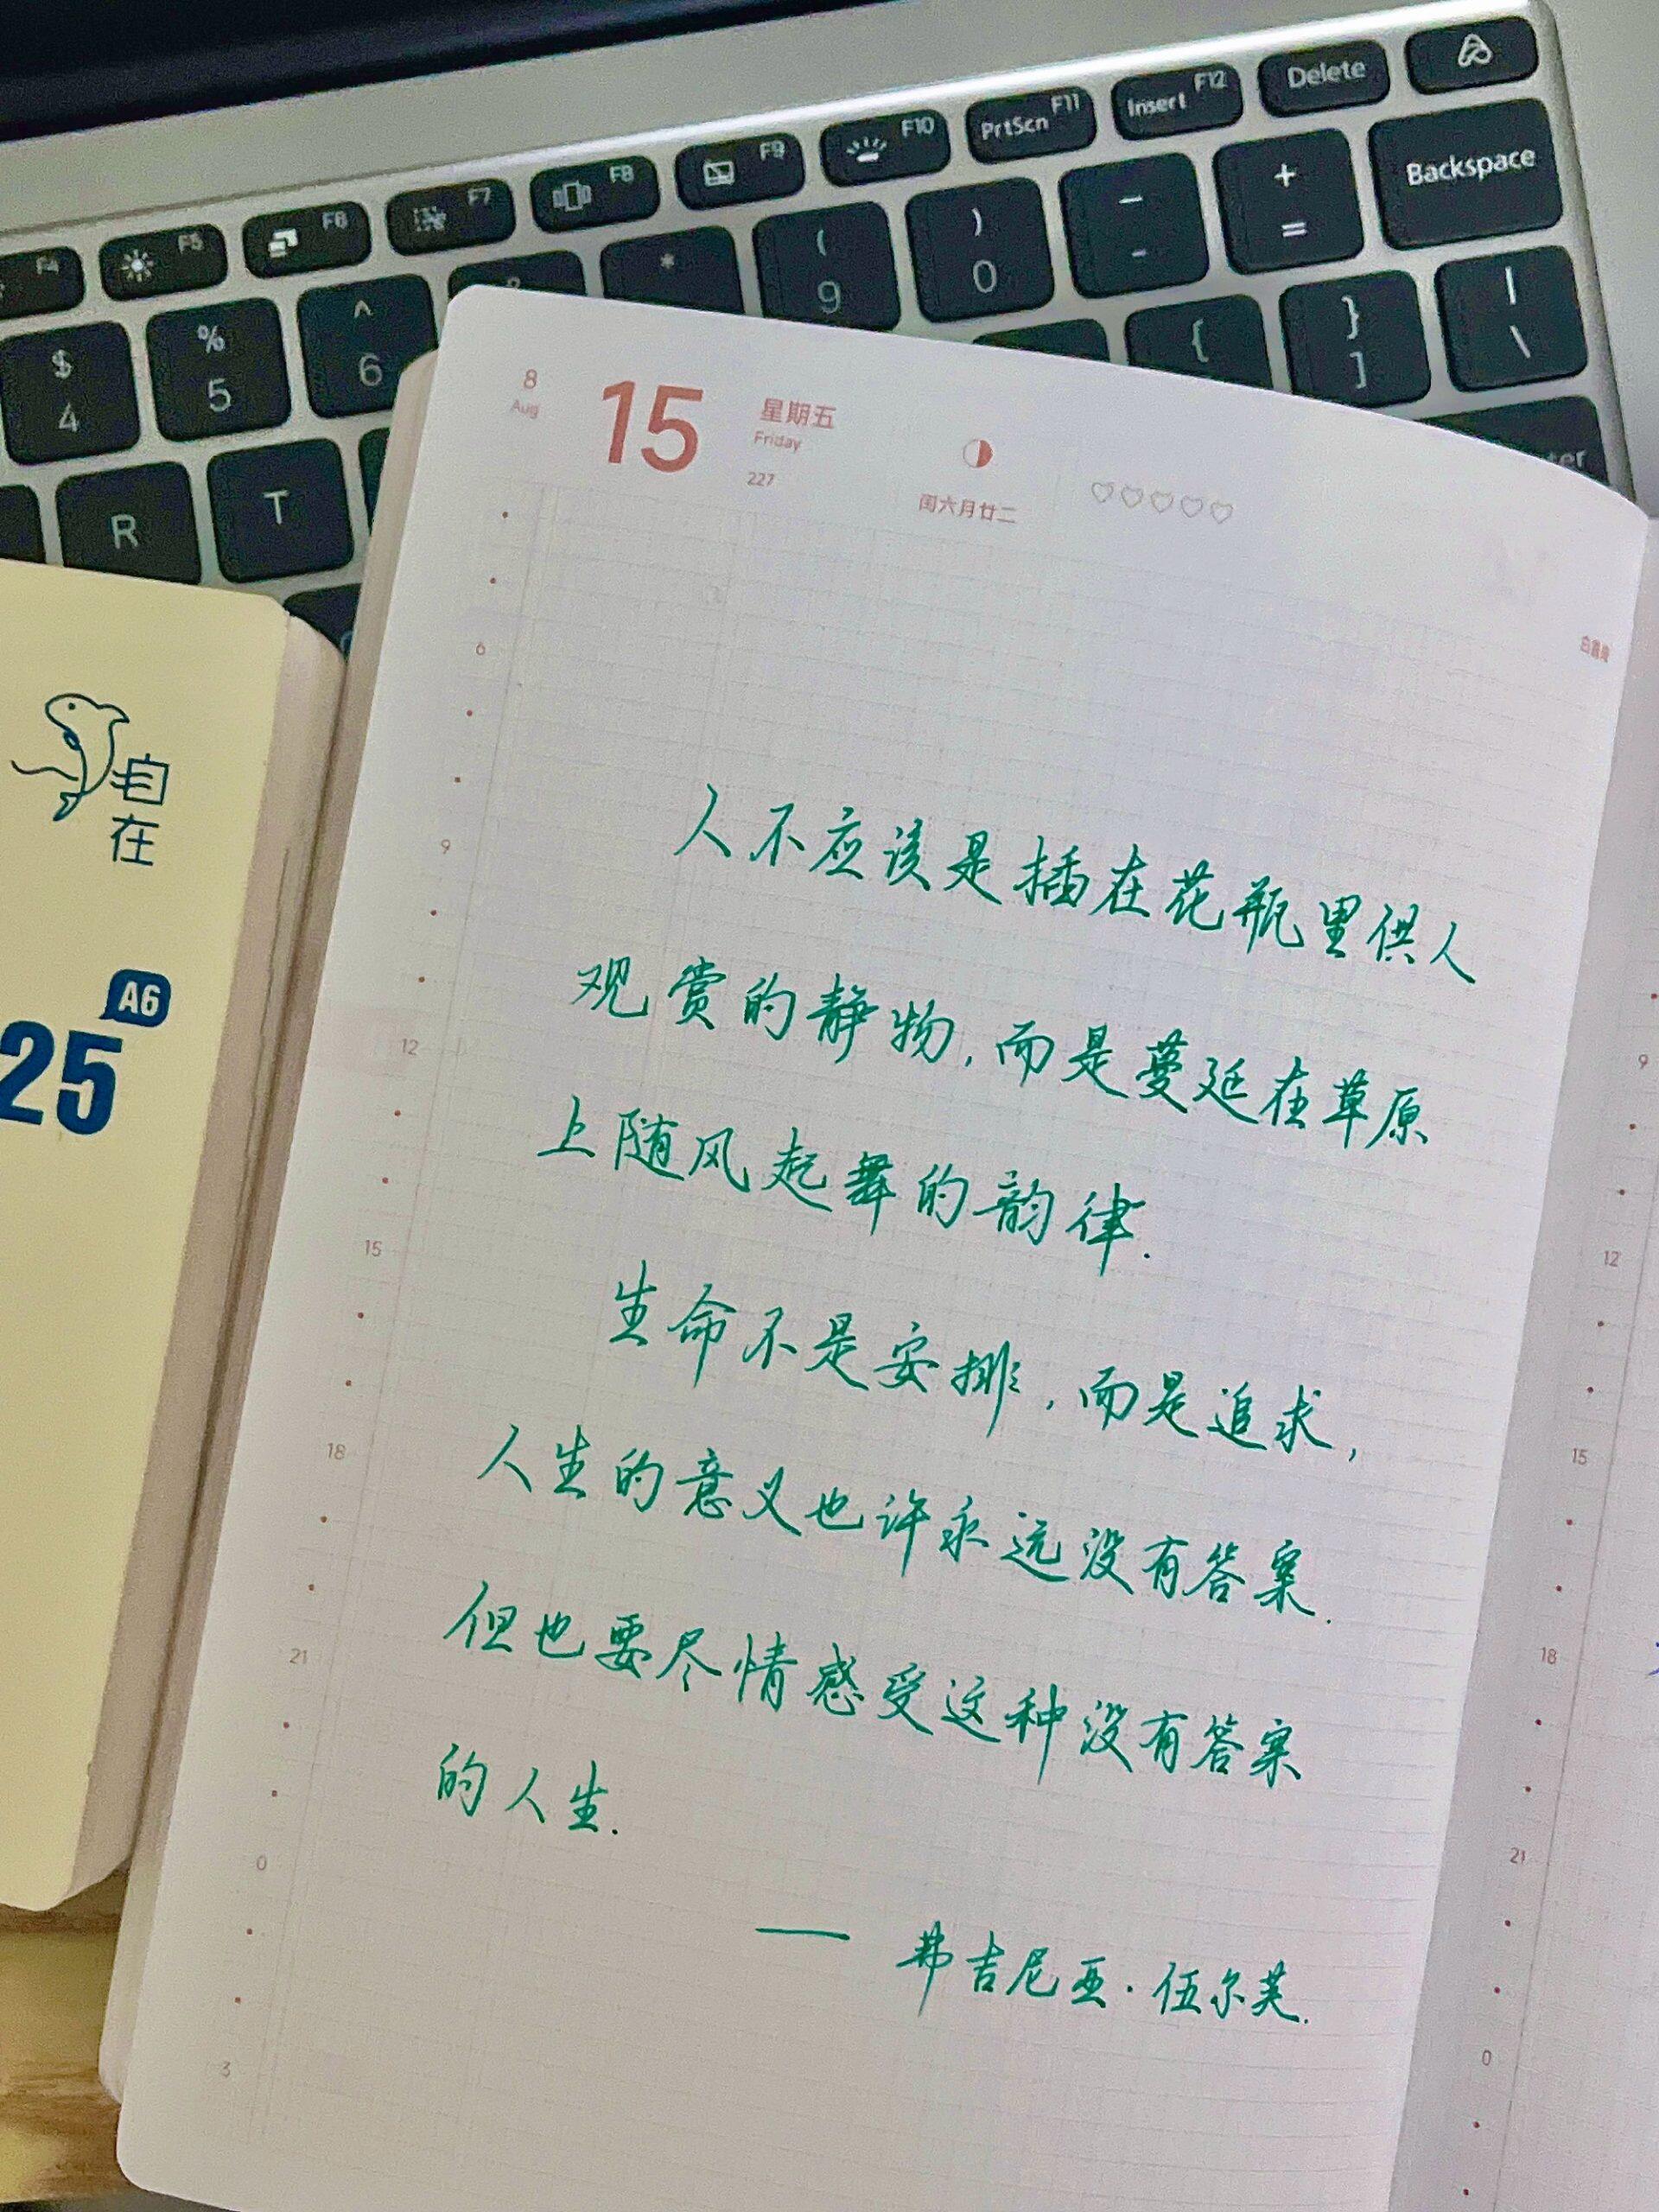 Delete
F12
Insert
F11
PrtScn
F10
F9
F8
F7
F6
F5
F4
Backspace
+
=
_
-
)
0
(
9
*
^
6
%
5
$
4
{
}
]
|
\
R
T
8
Aug
15
星期五
Friday
227
闰六月廿二
自在
A6
25
6
9
12
15
18
21
0
3
人不应该是插在花瓶里供人
观赏的静物,而是蔓延在草原
上随风起舞的韵律.
生命不是安排,而是追求,
人生的意义也许永远没有答案.
但也要尽情感受这种没有答案
的人生.
—— 弗吉尼亚·伍尔芙.
9
12
15
18
21
0